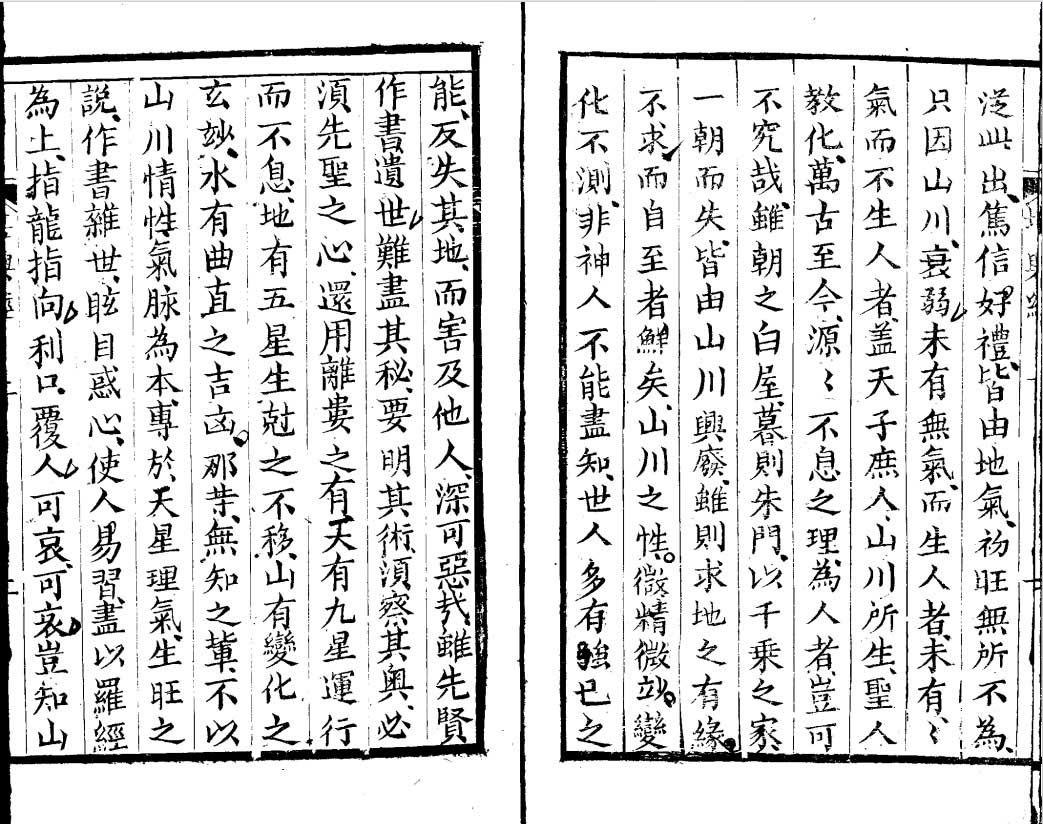 泛此出、篤信好禮、皆由地氣、初旺無所不為、
只因山川、衰弱、未有無氣、而生人者、未有〻
氣而不生人者、盖天子庶人、山川所生、聖人
教化、萬古至今、源〻不息之理、為人者、豈可
不究哉、雖朝之白屋、暮則朱門、以千乗之家、
一朝而失、皆由山川興廢、雖則求地之有緣、
不求而自至者鮮矣、山川之性。微精微玅。變
化不測、非神人不能盡知、世人多有強已之
能、反失其地、而害及他人、深可惡哉、雖先賢
作書遺世、難盡其秘、要明其術、湏察其奥、必
湏先聖之心、還用離婁之有、天有九星運行
而不息、地有五星生尅之不移、山有變化之
玄玅、水有曲直之吉凶。那𭭕、無知之軰、不以
山川情性、氣脉為本、專於天星理氣、生旺之
説、作書雜世、眩目惑心、使人易習、盡以羅經
為上、指龍指向、利口、覆人、可哀、可哀、豈知山